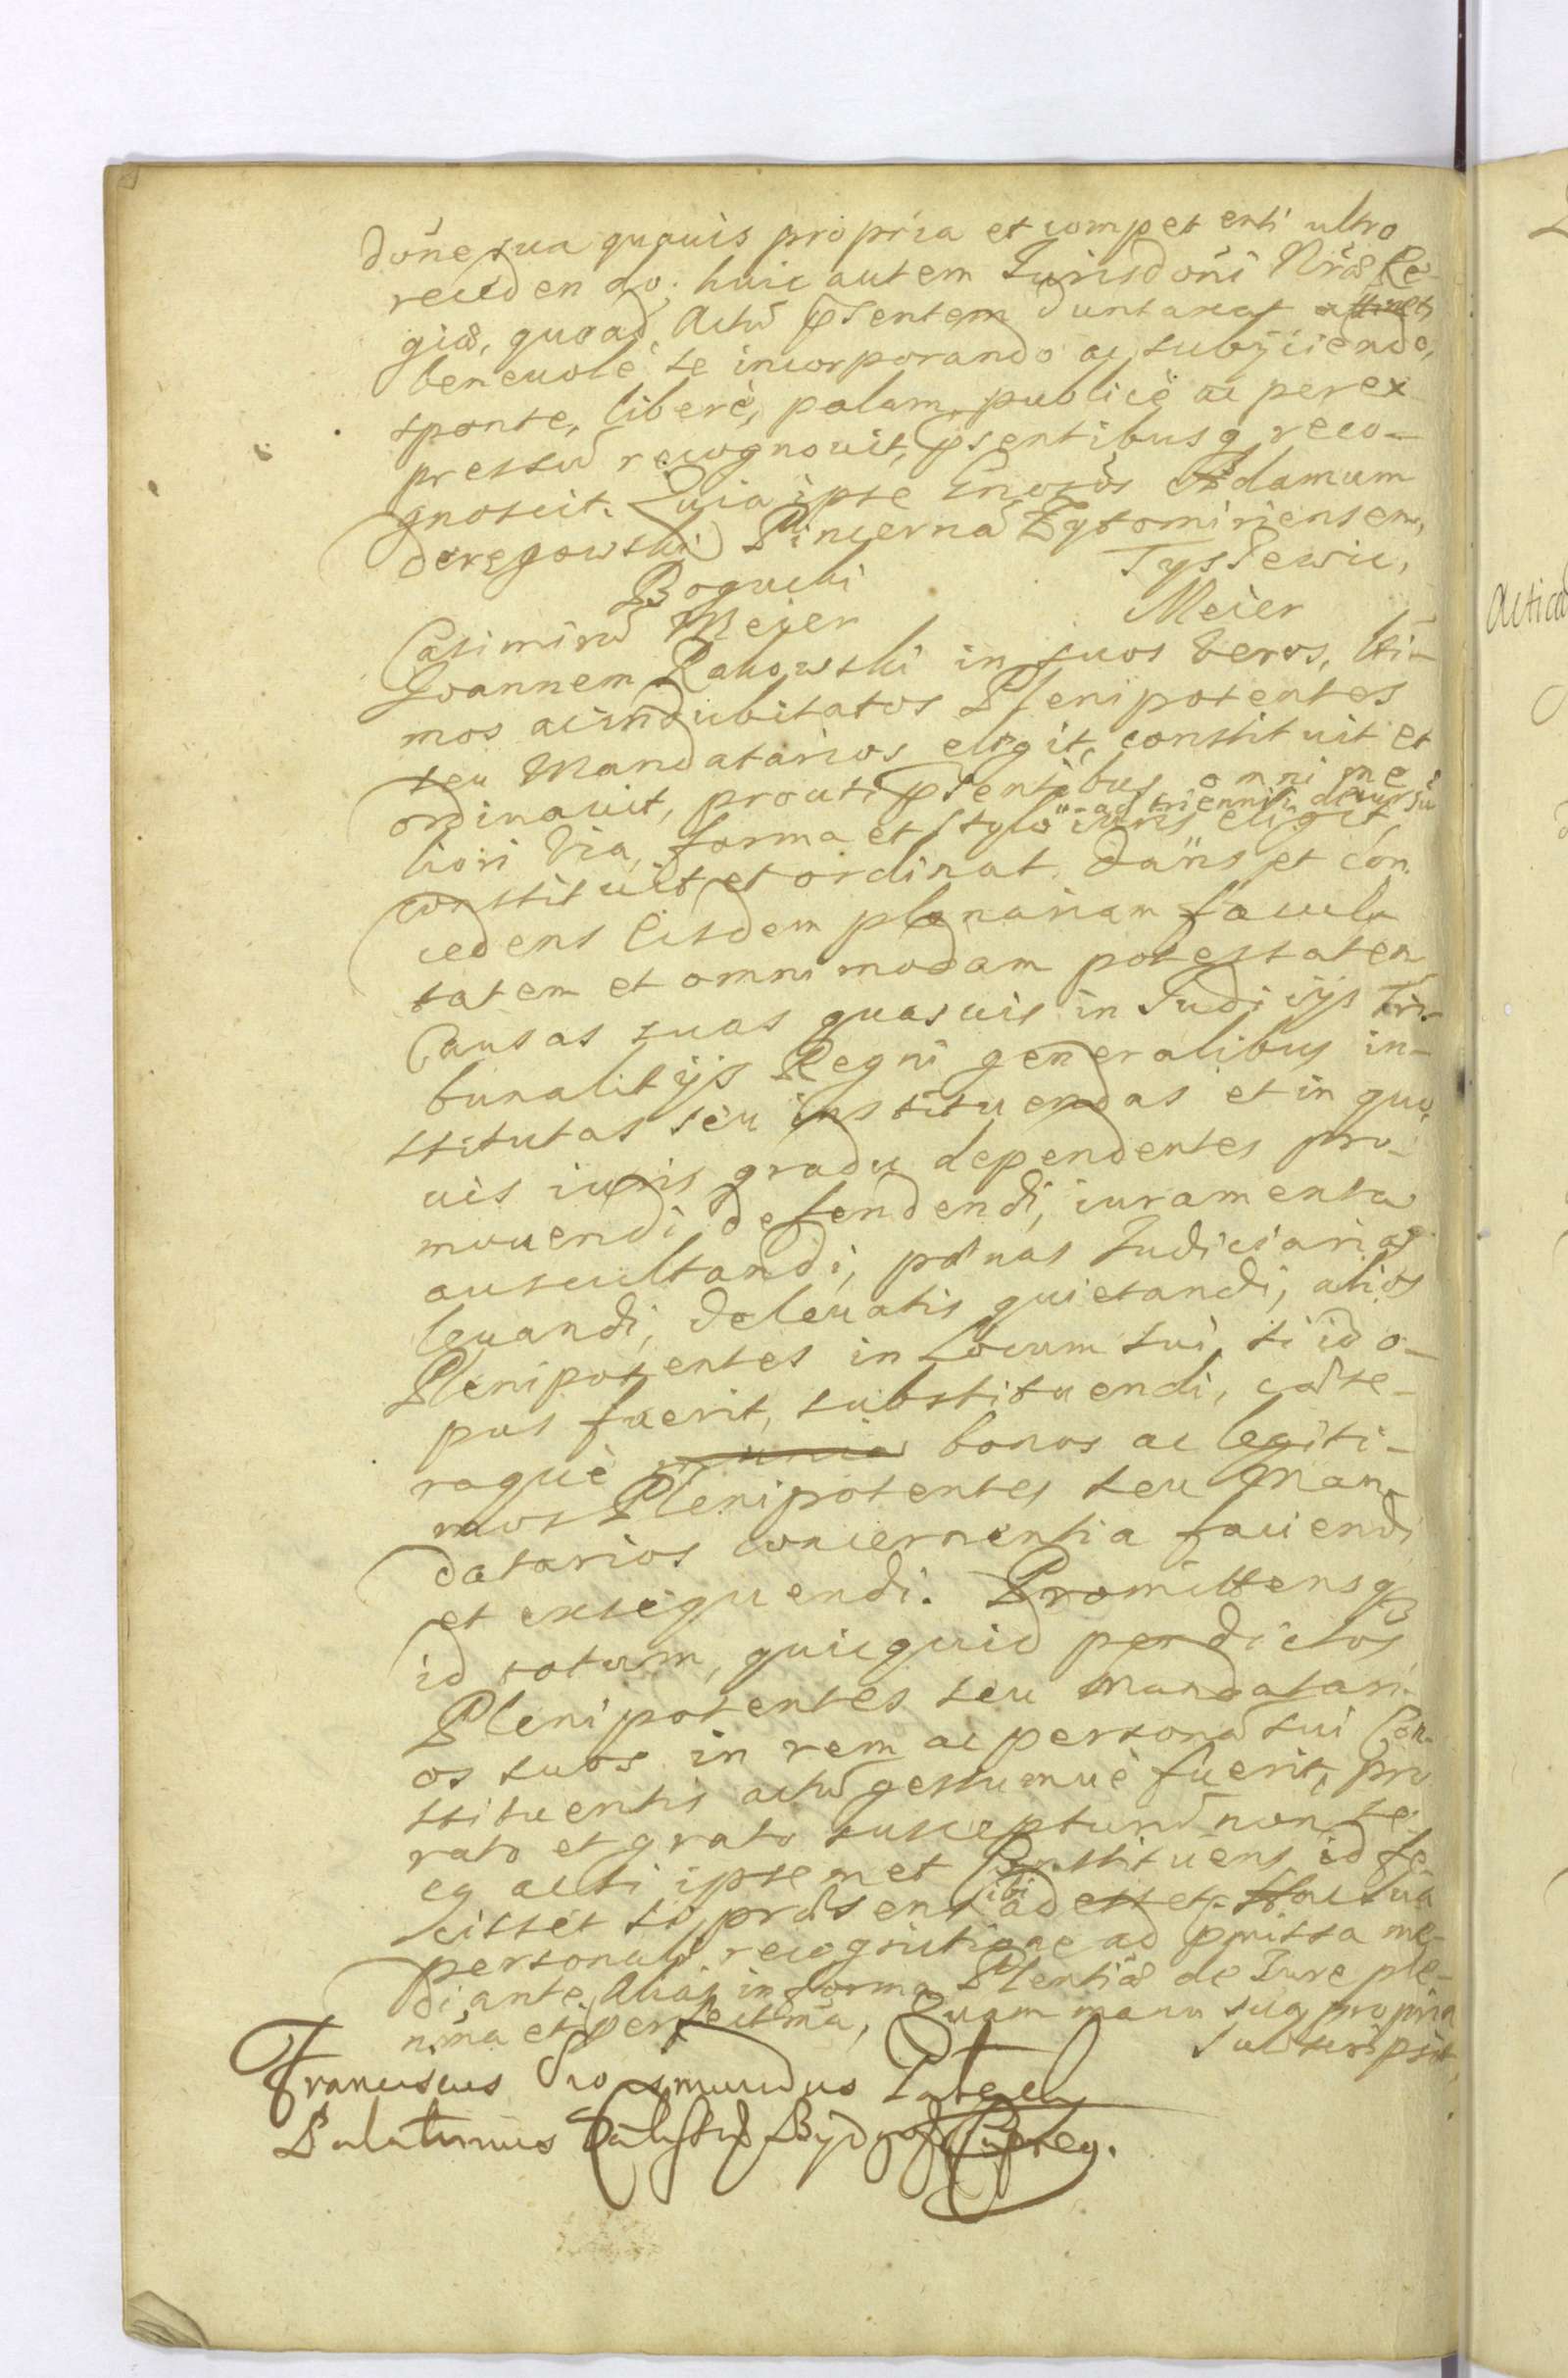 dõne sua quauis propria et competenti ultro
recedendo, huic autem Jurisdõni Nrae Re-
giae, quoad Actũ psentem duntaxat
beneuolè se incorporando ac subijciendo,
sponte, liberè, palam publicè ac per ex-
pressũ recognouit, psentibusq reco-
gnoscit. Quia ipse Gnosos Adamum
Pincernã Zytomiriensem,
Bogucki Tyszkewic,
Casimirũ Mejer Meier
Joannem Rakowski in suos veros, ltti-
mos ac indubitatos Plenipotentes
seu Mandatarios elegit, constituit et
ordinauit, prouti psentibus omni me-
liori via, forma et stylo iuris ad triennij decursũ eligit,
constituit et ordinat. Dans et con
cedens eisdem plenariam facul
tatem et omnimodam potestatem
Causas suas quasuis in Judicijs Tri-
bunalitijs Regni generalibus in-
stitutas seu instituendas et in quo
uis iuris gradu dependentes pro-
mouendi, defendendi, iuramenta
auscultandi, paenas Judiciarias
leuandi, de leuatis quietandi, alios
Plenipotentes in Locum sui, si id o-
pus fuerit, substituendi, caete-
raquè bonos ac legiti-
mos Plenipotentes seu Man-
datarios concernentia faciendi
et exequendi. Promittensq
id totum, quicquid per dictos
Plenipotentes seu Mandatari-
os suos in rem ac personã sui Con-
stituentis actũ gestumuè fuerit, pro
rato et grato suscepturũ non se-
cq ac si ipsemet Constituens id fe-
cisset si praesens ibi adesset. Hac sua
personali recognitione ad pmissa me-
diante. Alias in forma Plentiae de Jure ple-
nma et perfectma, Quam manu sua propria
subscripsit,
Franciscus Gałecki
Palatinus Calissis Bydgos Capeus.